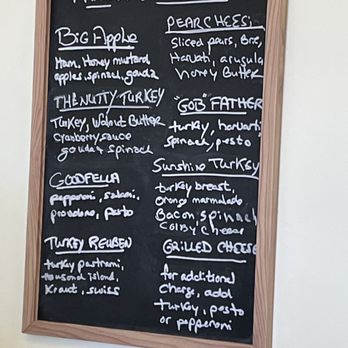 Big Apple
Ham, Honey mustard
apples, spinach, gouda
THE NUTTY TURKEY
Turkey, Walnut Butter
Cranberry sauce
gouda & spinach
GOODFELLA
pepperoni, salami,
provolone, pesto
TURKEY REUBEN
turkey pastrami,
thousand island,
Kraut, swiss
PEAR CHEESE
Sliced pears, Brie,
Havarti, arugula
honey Butter
"GOB" FATHER
turkey, havarti
spinach, pesto
Sunshine Turkey
turkey breast,
orange marmalade
Bacon, spinach
Colby cheese
GRILLED CHEESE
for additional
charge, add
turkey, pesto
or pepperoni